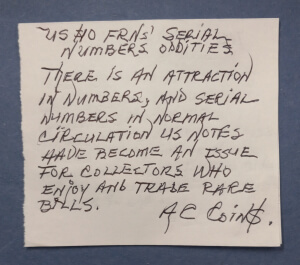 US $10 FRNs' SERIAL
NUMBERS ODDITIES
THERE IS AN ATTRACTION
IN NUMBERS, AND SERIAL
NUMBERS IN NORMAL
CIRCULATION US NOTES
HAVE BECOME AN ISSUE
FOR COLLECTORS WHO
ENJOY AND TRADE RARE
BILLS.
AC COIN$.